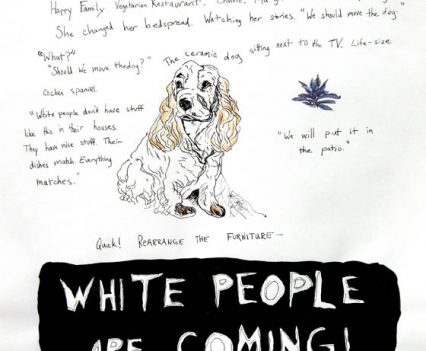 Happy Family Vegetarian Restaurant.
She changed her bedspread. Watching her stories. "We should move the dog"
"What?"
"Should we move the dog?" The ceramic dog sitting next to the TV. Life-size
cocker spaniel.
"White people don't have stuff
like this in their houses.
They have nice stuff. Their
dishes match. Everything
matches."
"We will put it in
the patio."
Quick! REARRANGE THE FURNITURE—
WHITE PEOPLE
ARE COMING!